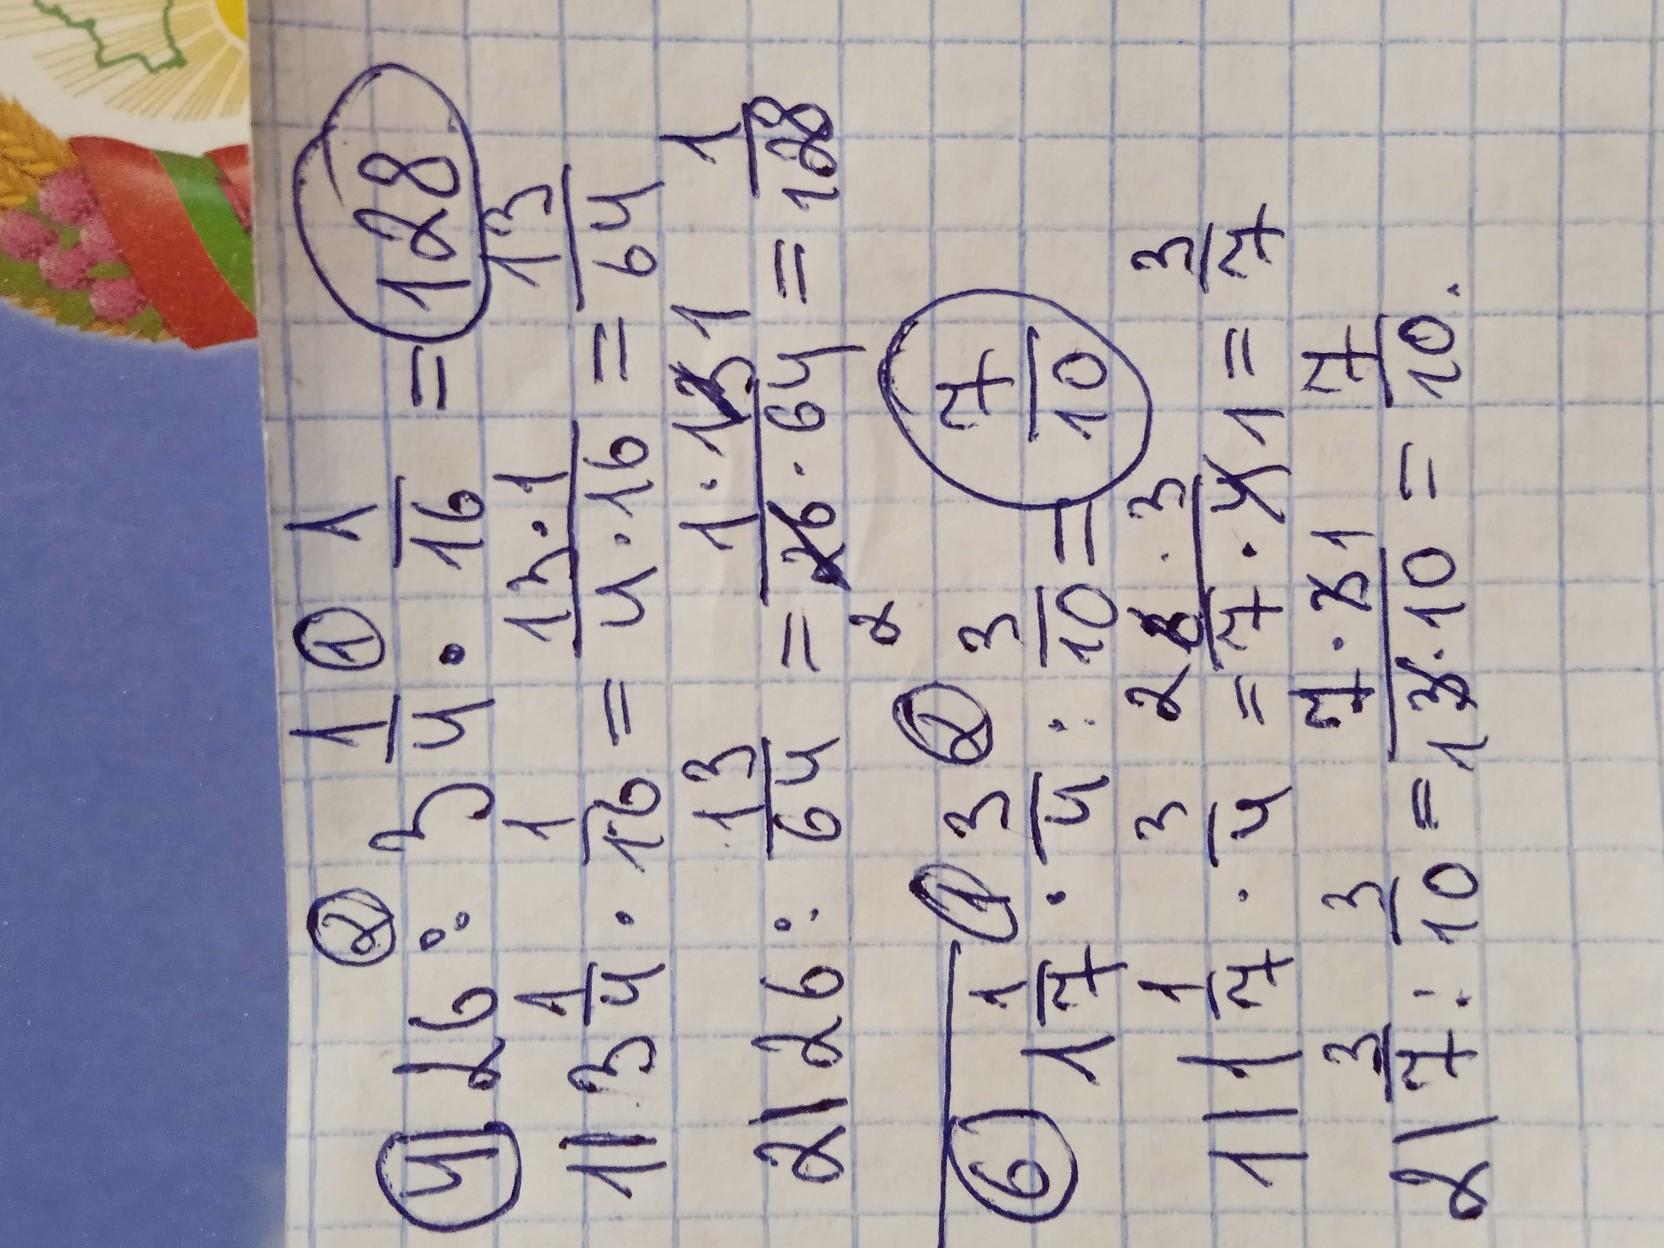 ② ①
4) 26 : 3 1/4 · 1/16 = 128
1) 3 1/4 · 1/16 = 13·1/4·16 = 13/64
2) 26 : 13/64 = 1·13 1/26·64 = 1/128
2
① ②
6 1 1/7 · 3/4 : 3/10 = 7/10
1) 1 1/7 · 3/4 = 2 8·3/7·4 1 = 3/7
2) 3/7 : 3/10 = 7·3 1/1 3·10 = 7/10.